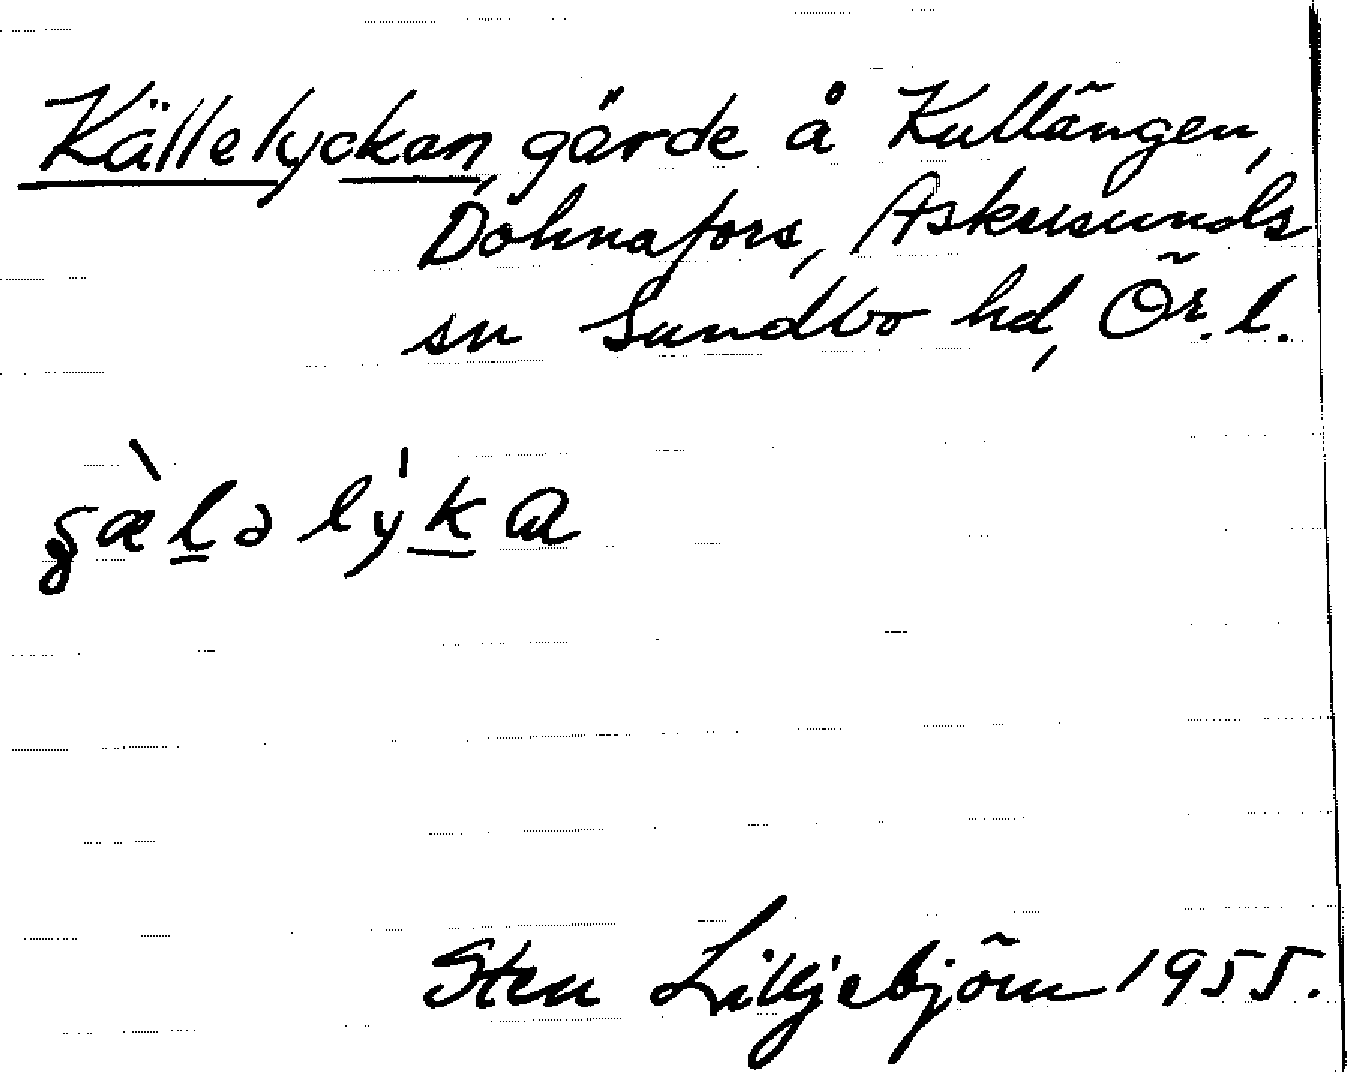 Källelyckan, gärde å Kullängen,
Dohnafors, Askersunds
sn Sundbo hd, Ör. l.
Sten Lilljebjörn 1955.